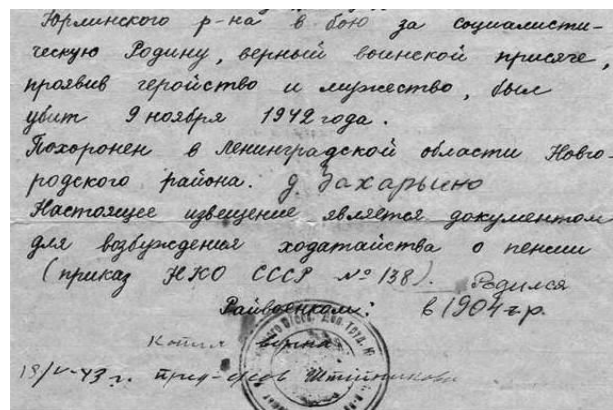 Юрлинского р-на в бою за социалисти-
ческую Родину, верный воинской присяге,
проявив геройство и мужество, был
убит 9 ноября 1942 года.
Похоронен в Ленинградской области Новго-
родского района. д. Захарьино
Настоящее извещение является документом
для возбуждения ходатайства о пенсии
(приказ НКО СССР № 138). Родился
Райвоенком: в 1904 г.р.
Копия верна
18/V-43 г.